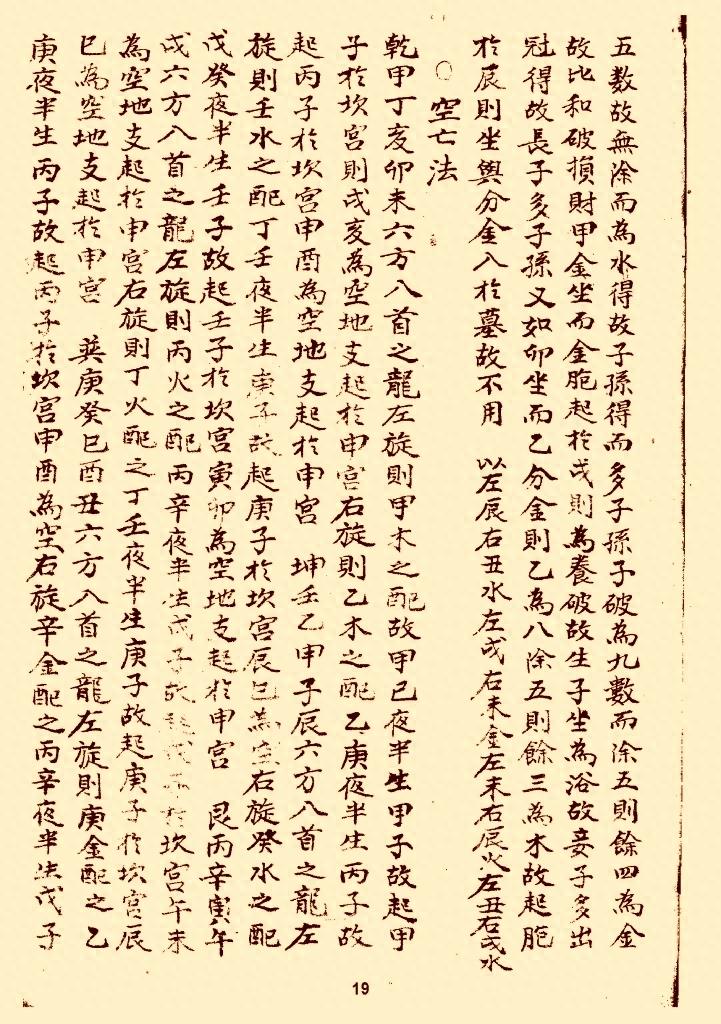 五數故無除而為水得故子孫得而多子孫子破為九數而除五則餘四為金
故比和破損財甲金坐而金胞起於戌則為養破故生子坐為浴故妾子多出
冠得故長子多子孫又如卯坐而乙分金則乙為八除五則餘三為木故起胞
於辰則坐與分金入於墓故不用 以左辰右丑水左戌右未金左未右辰火左丑右戌水
○ 空亡法
乾甲丁亥卯未六方八首之龍左旋則甲木之配故甲己夜半生甲子故起甲
子於坎宮則戌亥為空地支起於申宮右旋則乙木之配乙庚夜半生丙子故
起丙子於坎宮申酉為空地支起於申宮 坤壬乙申子辰六方八首之龍左
旋則壬水之配丁壬夜半生庚子故起庚子於坎宮辰巳為空右旋癸水之配
戊癸夜半生壬子故起壬子於坎宮寅卯為空地支起於申宮 艮丙辛寅午
戌六方八首之龍左旋則丙火之配丙辛夜半生戊子故起戊子於坎宮午未
為空地支起於申宮右旋則丁火配之丁壬夜半生庚子故起庚子於坎宮辰
巳為空地支起於申宮 巽庚癸巳酉丑六方八首之龍左旋則庚金配之乙
庚夜半生丙子故起丙子於坎宮申酉為空右旋辛金配之丙辛夜半生戊子
19